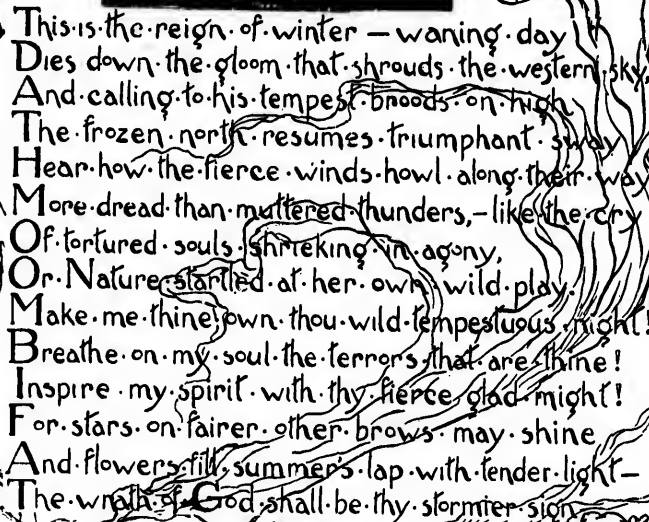 This·is·the·reign·of·winter — waning·day
Dies down·the·gloom·that·shrouds·the·western·sky,
And·calling·to·his·tempest·broods·on·high
The·frozen·north·resumes·triumphant·sway
Hear·how·the·fierce·winds·howl·along·their·way
More·dread·than·muttered·thunders,–like·the·cry
Of·tortured·souls·shrieking·in·agony,
Or·Nature·startled·at·her·own·wild·play.
Make·me·thine·own·thou·wild·tempestuous·night!
Breathe·on·my·soul·the·terrors·that·are·thine!
Inspire·my·spirit·with·thy·fierce·glad·might!
For·stars·on·fairer·other·brows·may·shine
And·flowers·fill·summer's·lap·with·tender·light–
The·wrath·of·God·shall·be·thy·stormier·sign